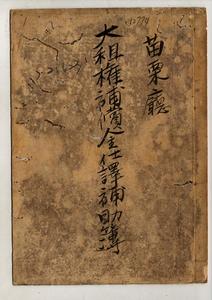 苗栗廳
大租權補償金仕譯補助簿